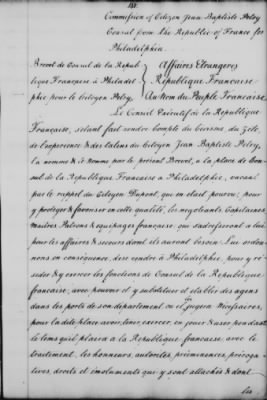 Commission of Citizen Jean Baptiste Petry
Consul from The Republic of France for
Philadelphia.
Brevet de Consul de la Repub
lique Française à Philadel
phie pour le Citoyen Petry.
Affaires Etrangeres
République Française
Au Nom du Peuple Française
Le Conseil Exécutif de la République
Française, s'étant fait rendre Compte du Civisme, du Zele,
de l'expérience & des talens du Citoyen Jean Baptiste Petry,
la nommé & le Nomme par le présent Brevet, a la place de Con-
sul de la République Française a Philadelphie, vacant
par le rappel du Citoyen Dupont, qui en etait pourvu; pour
y protéger & favoriser en cette qualité, les négotiants Capitaines
maitres, Patrons & equipages française qui s'adresseront a lui
pour les affaires & secours dont ils auront besoin. Lui ordon-
nons en conséquence, de se rendre à Philadelphie, pour y ré-
sider & y exercer les fonctions de Consul de la République
française, avec pouvoir d'y substituer et établir des agens
dans les ports de son département ou il jugera Nécessaires,
pour ladite place avoir, tenir, exercer, en jouir & user pendant
le tems qu'il plaira a la République française, avec le
traitement, les honneurs, autorités, prééminences, préroga-
tives, droits et émoluments qui y sont attachés & dont
les